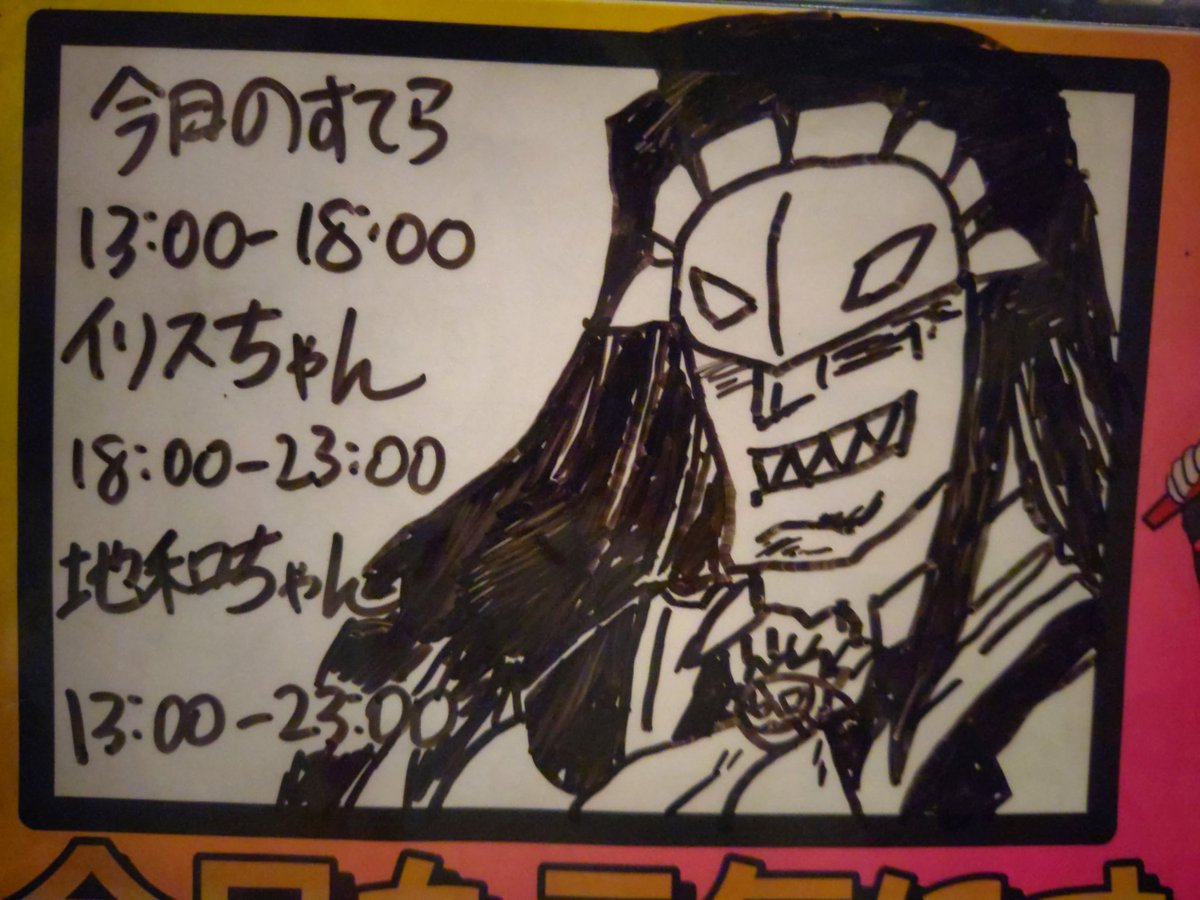 今日のすてら
13:00-18:00
イリスちゃん
18:00-23:00
地和ちゃん
13:00-23:00